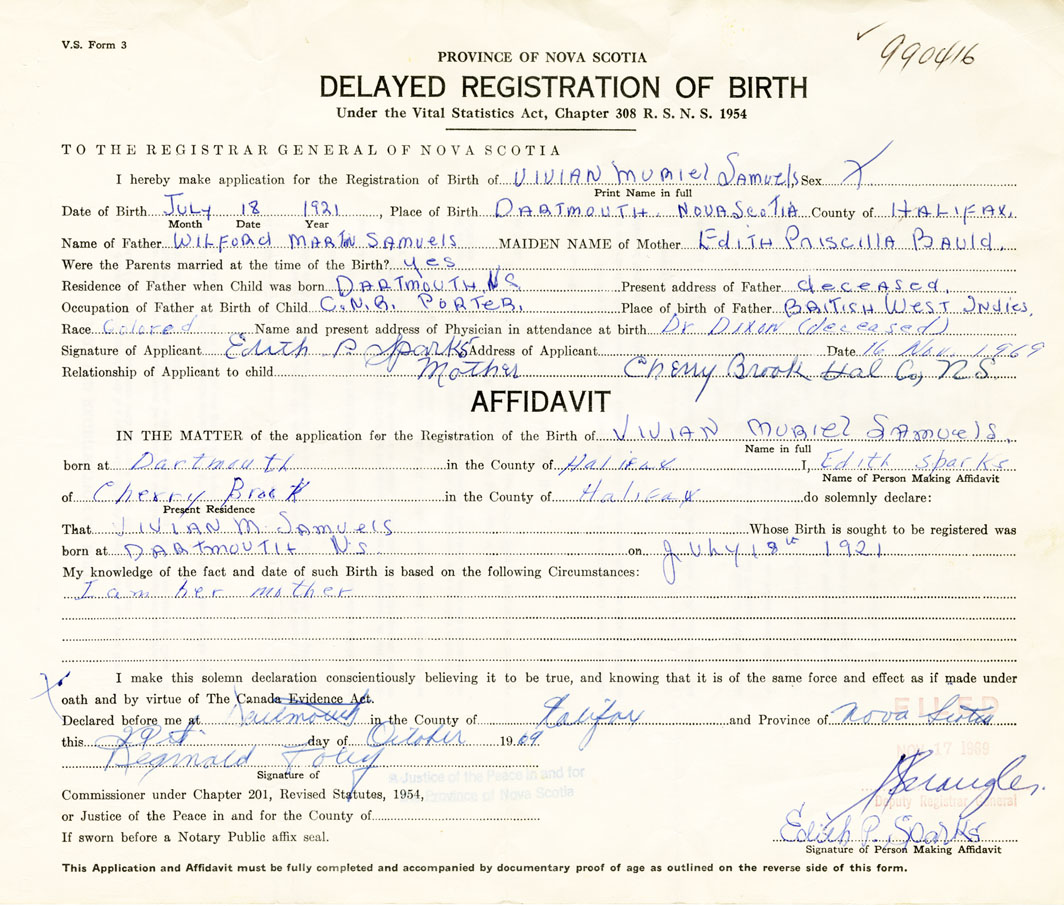 V.S. Form 3
990416
PROVINCE OF NOVA SCOTIA
DELAYED REGISTRATION OF BIRTH
Under the Vital Statistics Act, Chapter 308 R. S. N. S. 1954
TO THE REGISTRAR GENERAL OF NOVA SCOTIA
I hereby make application for the Registration of Birth of VIVIAN MURIEL SAMUELS, Sex
Print Name in full
Date of Birth JULY 18 1921, Place of Birth DARTMOUTH NOVA SCOTIA County of HALIFAX.
Month Date Year
Name of Father WILFORD MARTIN SAMUELS MAIDEN NAME of Mother EDITH PRISCILLA BAULD.
Were the Parents married at the time of the Birth? yes
Residence of Father when Child was born DARTMOUTH, NS Present address of Father deceased.
Occupation of Father at Birth of Child C.N.R. PORTER. Place of birth of Father BRITISH WEST Indies.
Race Colored Name and present address of Physician in attendance at birth Dr Dixon (deceased)
Signature of Applicant Edith P. Sparks Address of Applicant Date 16 Nov. 1969
Relationship of Applicant to child Mother Cherry Brook Hal Co, NS
AFFIDAVIT
IN THE MATTER of the application for the Registration of the Birth of VIVIAN MURIEL SAMUELS.
Name in full
born at Dartmouth in the County of Halifax I, Edith Sparks
Name of Person Making Affidavit
of Cherry Brook in the County of Halifax do solemnly declare:
Present Residence
That VIVIAN M. SAMUELS Whose Birth is sought to be registered was
born at DARTMOUTH N.S. on July 18th 1921
My knowledge of the fact and date of such Birth is based on the following Circumstances:
I am her mother
I make this solemn declaration conscientiously believing it to be true, and knowing that it is of the same force and effect as if made under
oath and by virtue of The Canada Evidence Act.
Declared before me at Dartmouth in the County of Halifax and Province of Nova Scotia
FILED
this day of October 1969
NOV 17 1969
Reginald
Signature of
a Justice of the Peace in and for
the Province of Nova Scotia
Commissioner under Chapter 201, Revised Statutes, 1954,
Deputy Registrar General
or Justice of the Peace in and for the County of
Edith P. Sparks
If sworn before a Notary Public affix seal.
Signature of Person Making Affidavit
This Application and Affidavit must be fully completed and accompanied by documentary proof of age as outlined on the reverse side of this form.